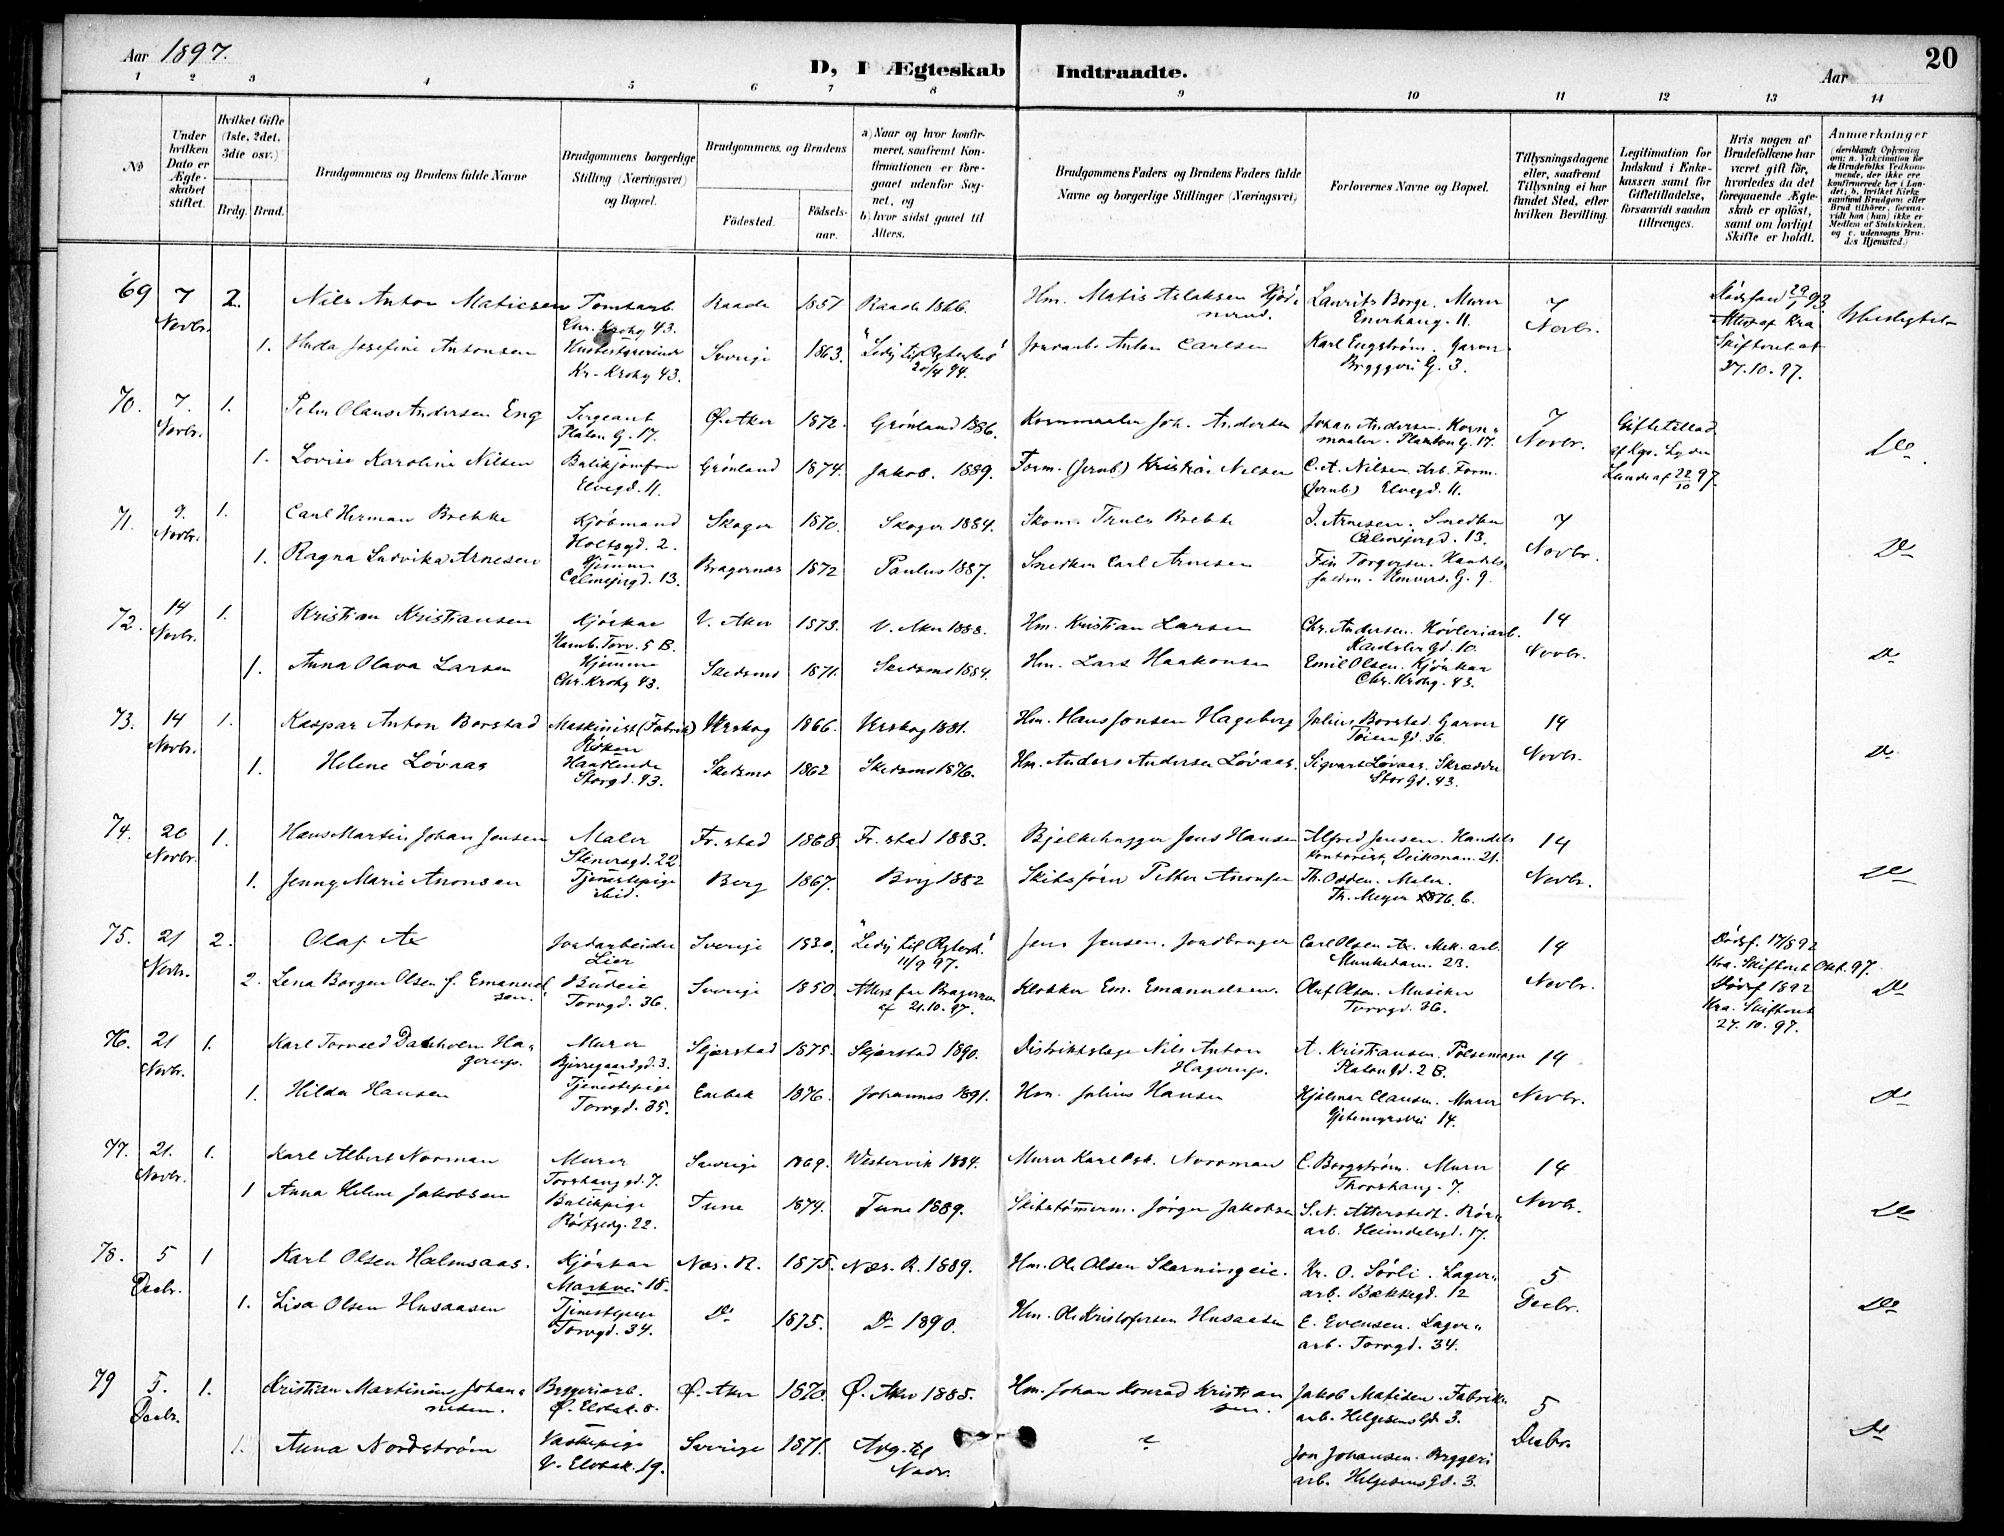 Aar 1897.
D, I Ægteskab Indtraadte.
Aar
20
1 2 3 4 5 6 7 8 9 10 11 12 13 14
No
Under hvilken Dato er Ægteskabet stiftet.
Hvilket Gifte (1ste, 2det, 3die osv.)
Brdg. Brud.
Brudgommens og Brudens fulde Navne
Brudgommens borgerlige Stilling (Næringsvei) og Bopæl.
Brudgommens og Brudens
Fødested.
Fødselsaar.
a) Naar og hvor konfirmeret, saafremt Konfirmationen er foregaaet udenfor Sognet, og
b) hvor sidst gaaet til Alters.
Brudgommens Faders og Brudens Faders fulde Navne og borgerlige Stillinger (Næringsvei)
Forlovernes Navne og Bopæl.
Tillysningsdagene eller, saafremt Tillysning ei har fundet Sted, efter hvilken Bevilling.
Legitimation for Indskud i Enkekassen samt for Giftetilladelse, forsaavidt saadan tiltrænges.
Hvis nogen af Brudefolkene har været gift før, hvorledes da det foregaaende Ægteskab er opløst, samt om lovligt Skifte er holdt.
Anmerkninger (deriblandt Oplysning om: a. Vakcination for de Brudefolks Vedkommende, der ikke ere konfirmerede her i Landet; b. hvilket Kirkesamfund Brudgom eller Brud tilhører, forsaavidt han (hun) ikke er Medlem af Statskirken, og c. udensogns Brudes Hjemsted.)
69 7 Novbr. 2. Nils Anton Matiesen Tomtearb. Chr. Krohg 43. Raade 1851 Raade 1866. Hm. Matis Aslaksen Lauritz Borge. Murer Enerhaug. 11. 7 Novbr. 29/1 93 Attest af Kra. Skifteret af 27.10.97.
1. Hulda Josefine Antonsen Husbestyrerinde Kr. Krohg 43. Sverige 1863. "Ledig til Ægteskab" 20/4 94. Jordarb. Anton Carlsen Karl Engström. Garver Bryggeri G. 3.
70. 7. Novbr. 1. Peter Olaus Andersen Eng Sergeant Platou G. 17. Ø. Aker 1872. Grønland 1886. Kornmaaler Joh. Andersen Johan Andersen. Kornmaaler. Platou G. 17. 7 Novbr. Giftetillad. 22/10 97. Do
1. Lovise Karoline Nilsen Butikjomfru Elvegd. 11. Grønland 1874. Jakob. 1889. Form. (Jernb) Kristian Nilsen C. A. Nilsen. Arb. Form. (Jernb) Elvegd. 11.
71. 9. Novbr. 1. Carl Herman Brekke Kjøbmand Holtegd. 2. Skoger 1870. Skoger 1884. Skom. Truls Brekke J. Arnesen. Snedker Calmeyergd. 13. 7 Novbr. Do
1. Ragna Ludvika Arnesen Hjemme Calmeyergd. 13. Bragernæs 1872 Paulus 1887. Snedker Carl Arnesen Fin Torgersen. Univers. G. 9.
72. 14 Novbr. 1. Kristian Kristiansen Kjørekar Hamb. Torv. 5 B. V. Aker 1873. V. Aker 1888. Hm. Kristian Larsen Chr. Andersen. Høvleriarb. Gd. 10. 14 Novbr. Do
1. Anna Olava Larsen Hjemme Chr. Krohg 43. Skedsmo 1871. Skedsmo 1884. Hm. Lars Haakonsen Emil Olsen. Kjørekar Chr. Krohg. 43.
73. 14 Novbr. 1. Kaspar Anton Borstad Maskinist (Fabrik) Røken Urskog 1866. Urskog 1881. Hm. Hans Jonsen Hageberg Julius Borstad. Garver Tøien Gd. 36. 14 Novbr. Do
1. Helene Løvaas Storgd. 43. Skedsmo 1862 Skedsmo 1876. Hm. Anders Andersen Løvaas. Sigvart Løvaas. Skrædder Stor Gd. 43.
74. 20 Novbr. 1. Hans Martin Johan Jensen Maler Stenersgd. 22 Fr. stad 1868. Fr. stad 1883. Bjelkehugger Jens Hansen Alfred Jensen. Handelskontorist, Deikman. 21. 14 Novbr. Do
1. Jenny Marie Aronsen Tjenestepige ibid. Berg 1867. Berg 1882 Skibsfører Petter Aronsen Th. Odden. Maler. Th. Meyer
75. 21 Novbr. 2. Olaf Ax Jordarbeider Lier Sverige 1830. "Ledig til Ægtesk." 11/9 97. Jens Jensen. Jordbruger Carl Olsen Ax. Mek. arb. Munkedam. 23. 14 Novbr. Dødsf. 17/5 92 Kra. Skifteret Okt. 97. Do
2. Lena Borger Olsen f. Emanuelsen. Budeie Torvgd. 36. Sverige 1850. Attest fra Bragernes af 21.10.97. Klokker Em. Emanuelsen. Oluf Olsen. Musiker Torvgd. 36. Dødsf 1892 Kra. Skifteret 27.10.97.
76. 21 Novbr. 1. Karl Torvald Dakholm Hagerup. Murer Bjerregaardgd. 3. Skjærstad 1875. Skjærstad 1890. Distriktslæge Nils Anton Hagerup. A. Kristiansen. Pølsemager Platou Gd. 2 B. 14 Novbr. Do
1. Hilda Hansen Tjenestepige Torvgd. 35. Enebak 1876. Johannes 1891. Hm. Julius Hansen Hjalmar Clausen. Murer Gjetemyrsvei 14.
77. 21. Novbr. 1. Karl Albert Norman Murer Torshauggd. 7. Sverige 1869. Westervik 1884. Murer Karl Norrman C. Borgström. Murer Thorshaug. 7. 14 Novbr. Do
1 Anna Helene Jakobsen Butikpige 22. Tune 1874. Tune 1889. Skibstømerm. Jørgen Jakobsen S. N. Atterstedt. Rørarb. Heimdalsgd. 17.
78. 5 Decbr. 1 Karl Olsen Halmsaas. Kjørekar Markvei 18. Næs. R. 1875. Næs. R. 1889. Hm. Ole Olsen Skarningeie. Kr. O. Sørli. Lagerarb. Bakkegd. 12 5 Decbr. Do
1. Lisa Olsen Husaasen Tjenestepige Torvgd. 34. Do 1875. Do 1890. Hm. Ole Kristofersen Husaasen E. Evensen. Lagerarb. Torvgd. 34.
79 5. Decbr. 1. Kristian Martinius Johannesen. Bryggeriarb. Ø. Elvbak. 8. Ø. Aker 1870. Ø. Aker 1885. Hm. Johan Konrad Kristiansen. Jakob Matisen. Fabrikarb. Helgesens Gd. 3. 5 Decbr. Do
1. Anna Nordstrøm Vaskepige V. Elvbak. 19. Sverige 1871. Adg. til Nadv. ? Jon Johansen. Bryggeriarb. Helgesens Gd. 3.